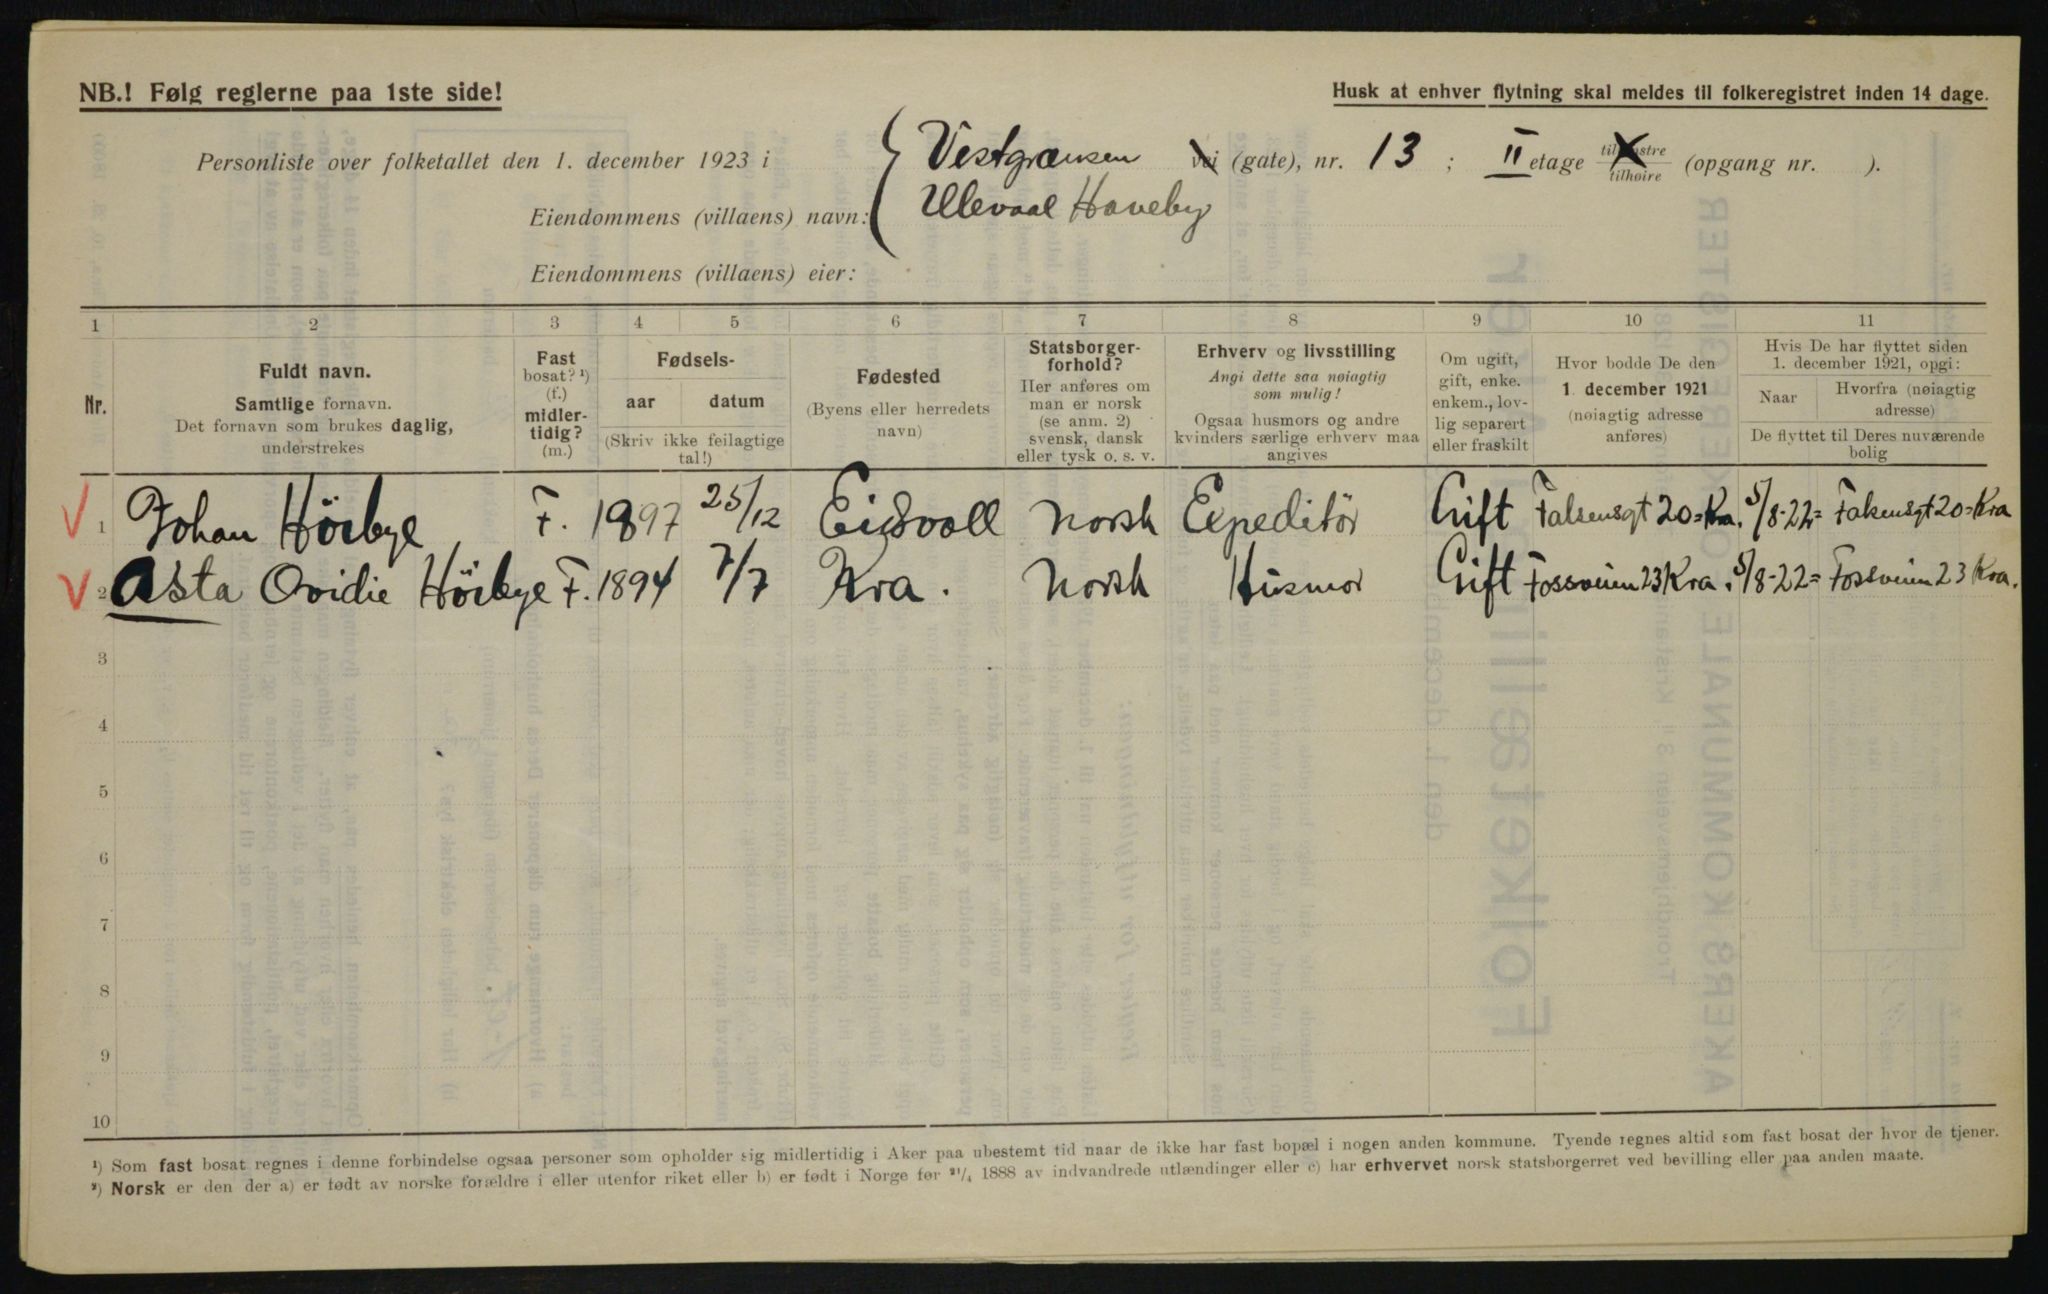 NB.! Følg reglerne paa 1ste side!
Husk at enhver flytning skal meldes til folkeregistret inden 14 dage.
Personliste over folketallet den 1. december 1923 i Vestgrænsen vei (gate), nr. 13 ; II etage tilvenstre tilhøire (opgang nr. ).
Eiendommens (villaens) navn: Ullevaal Haveby
Eiendommens (villaens) eier:
1 2 3 4 5 6 7 8 9 10 11
Nr.
Fuldt navn.
Samtlige fornavn.
Det fornavn som brukes daglig,
understrekes
Fast
bosat? ¹)
(f.)
midler-
tidig?
(m.)
Fødsels-
aar datum
(Skriv ikke feilagtige
tal!)
Fødested
(Byens eller herredets
navn)
Statsborger-
forhold?
Her anføres om
man er norsk
(se anm. 2)
svensk, dansk
eller tysk o. s. v.
Erhverv og livsstilling
Angi dette saa nøiagtig
som mulig!
Ogsaa husmors og andre
kvinders særlige erhverv maa
angives
Om ugift,
gift, enke.
enkem., lov-
lig separert
eller fraskilt
Hvor bodde De den
1. december 1921
(nøiagtig adresse
anføres)
Hvis De har flyttet siden
1. december 1921, opgi:
Naar
Hvorfra (nøiagtig
adresse)
De flyttet til Deres nuværende
bolig
1 Johan Hörbye F. 1897 25/12 Eidsvoll Norsk Expeditör Gift Falsensgt 20 = Kra. 5/8-22 = Falsensgt 20 = Kra
2 Asta Ovidie Hörbye F. 1894 7/7 Kra. Norsk Husmor Gift Fossveien 23 Kra. 5/8-22 = Fossveien 23 Kra.
3
4
5
6
7
8
9
10
¹) Som fast bosat regnes i denne forbindelse ogsaa personer som opholder sig midlertidig i Aker paa ubestemt tid naar de ikke har fast bopæl i nogen anden kommune. Tyende regnes altid som fast bosat der hvor de tjener.
²) Norsk er den der a) er født av norske forældre i eller utenfor riket eller b) er født i Norge før ²¹/₄ 1888 av indvandrede utlændinger eller c) har erhvervet norsk statsborgerret ved bevilling eller paa anden maate.